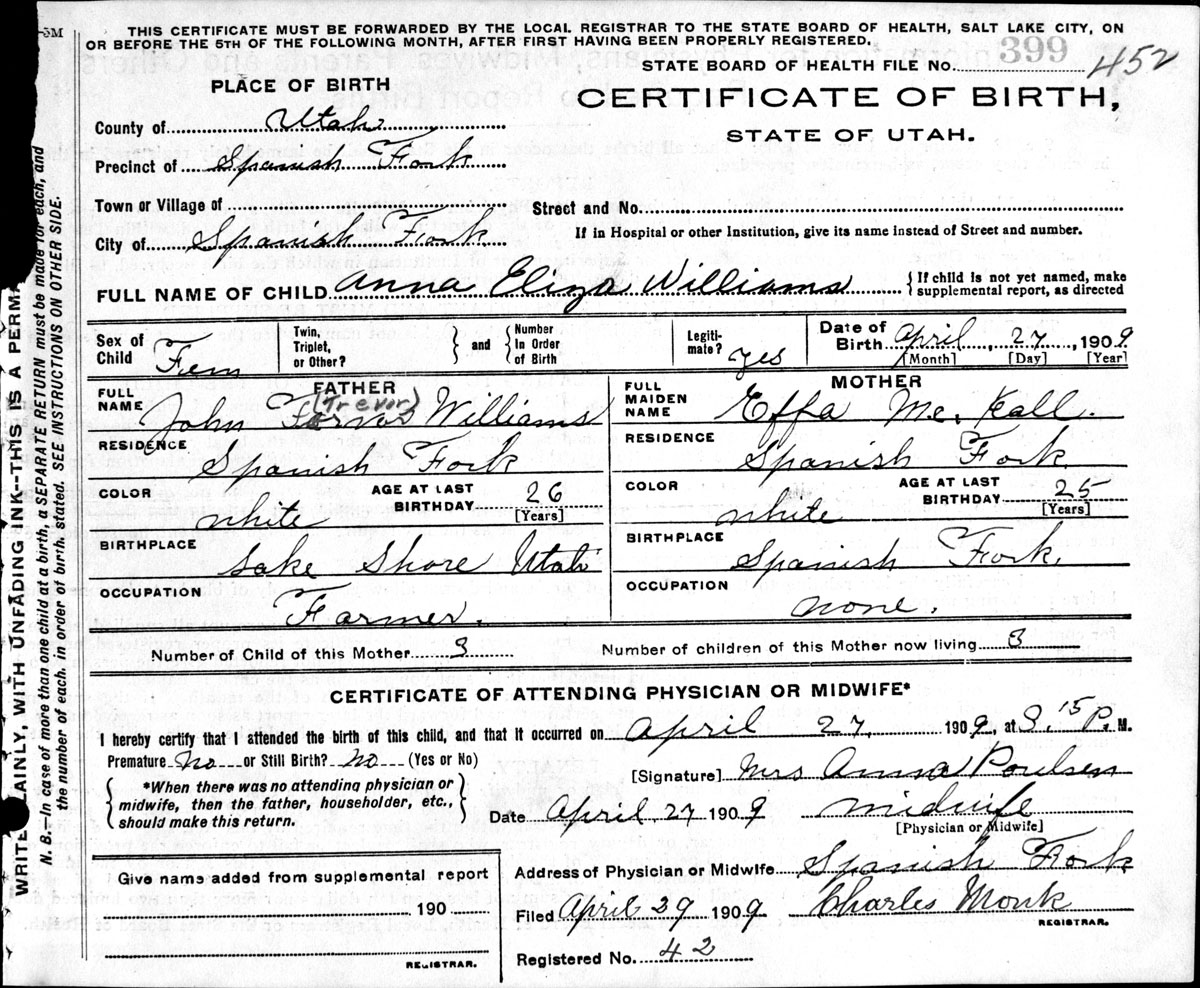 3M THIS CERTIFICATE MUST BE FORWARDED BY THE LOCAL REGISTRAR TO THE STATE BOARD OF HEALTH, SALT LAKE CITY, ON
OR BEFORE THE 5TH OF THE FOLLOWING MONTH, AFTER FIRST HAVING BEEN PROPERLY REGISTERED.
STATE BOARD OF HEALTH FILE No. 399 452
PLACE OF BIRTH
CERTIFICATE OF BIRTH,
STATE OF UTAH.
County of Utah
Precinct of Spanish Fork
Town or Village of
Street and No.
City of Spanish Fork
If in Hospital or other Institution, give its name instead of Street and number.
FULL NAME OF CHILD Anna Eliza Williams {If child is not yet named, make
supplemental report, as directed
Sex of Child Fem
Twin, Triplet, or Other? } and { Number In Order of Birth
Legiti-mate? yes
Date of Birth April, 27, 1909
[Month] [Day] [Year]
FATHER
FULL NAME John (Trevor) Williams
RESIDENCE Spanish Fork
COLOR white
AGE AT LAST BIRTHDAY 26
[Years]
BIRTHPLACE Lake Shore Utah
OCCUPATION Farmer.
MOTHER
FULL MAIDEN NAME Effa Mc. Kall.
RESIDENCE Spanish Fork
COLOR white
AGE AT LAST BIRTHDAY 25
[Years]
BIRTHPLACE Spanish Fork.
OCCUPATION none.
Number of Child of this Mother 3
Number of children of this Mother now living 3
CERTIFICATE OF ATTENDING PHYSICIAN OR MIDWIFE*
I hereby certify that I attended the birth of this child, and that it occurred on April 27, 1909, at 3.15 P. M.
Premature No or Still Birth? No (Yes or No)
[Signature] Mrs Anna Poulsen
{ *When there was no attending physician or
midwife, then the father, householder, etc.,
should make this return. }
Date April 27 1909 midwife
[Physician or Midwife]
Give name added from supplemental report
190
REGISTRAR.
Address of Physician or Midwife Spanish Fork
Filed April 29 1909 Charles Monk
REGISTRAR.
Registered No. 42
WRITE PLAINLY, WITH UNFADING INK--THIS IS A PERMA
N. B.--In case of more than one child at a birth, a SEPARATE RETURN must be made for each, and
the number of each, in order of birth, stated. SEE INSTRUCTIONS ON OTHER SIDE.